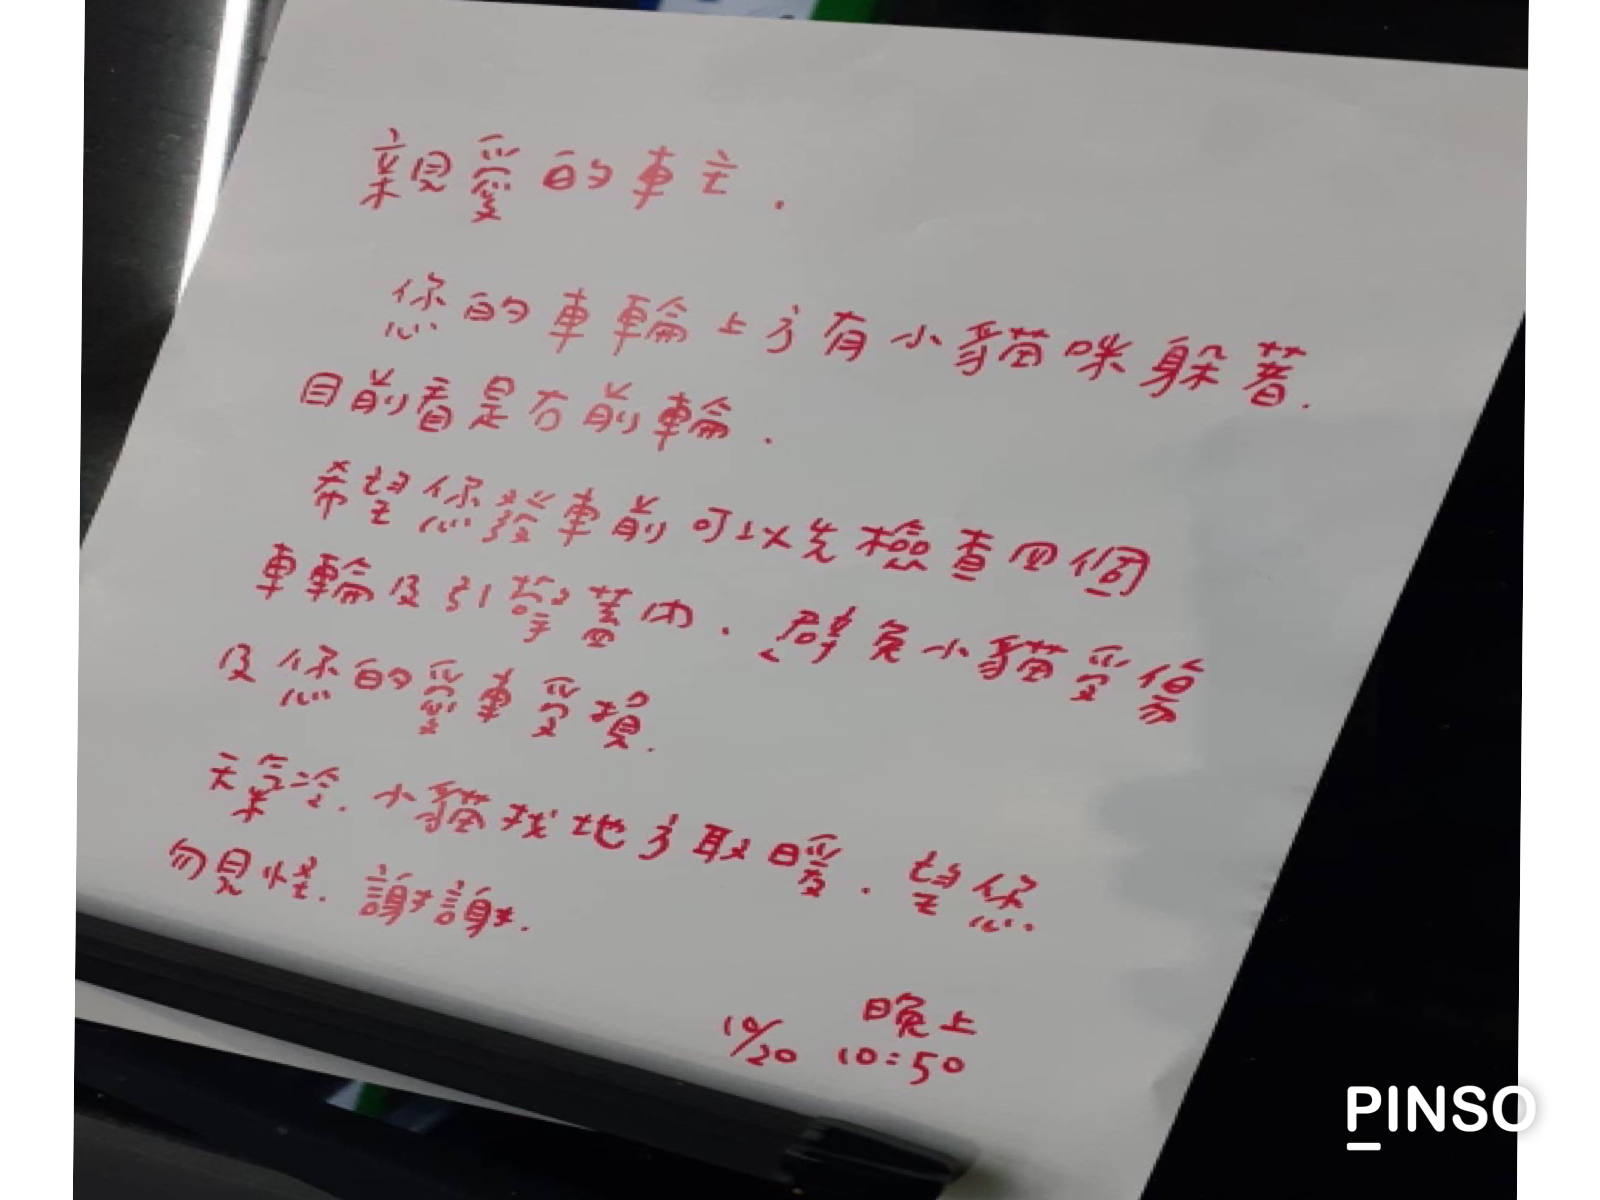 親愛的車主.
您的車輪上方有小貓咪躲著.
目前看是右前輪.
希望您發車前可以先檢查四個
車輪及引擎蓋內.避免小貓受傷
及您的愛車受損.
天氣冷.小貓找地方取暖.望您
勿見怪.謝謝.
晚上
10/20 10:50
PINSO